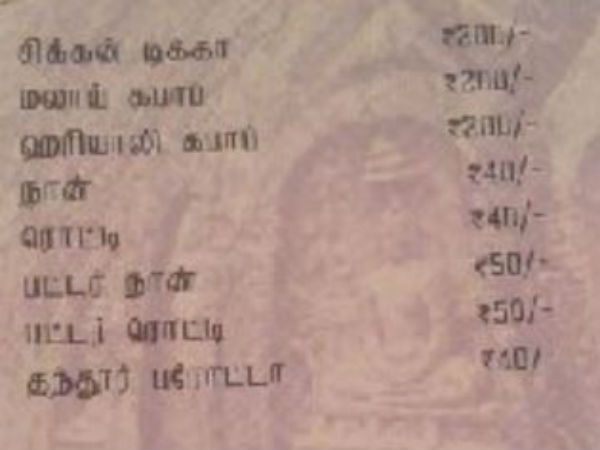 சிக்கன் டிக்கா ₹200/-
மலாய் கபாப் ₹200/-
ஹரியாலி கபாப் ₹200/-
நான் ₹40/-
ரொட்டி ₹40/-
பட்டர் நான் ₹50/-
பட்டர் ரொட்டி ₹50/-
தந்தூர் பரோட்டா ₹40/